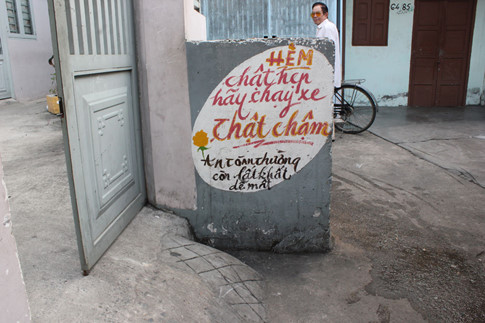 HẺM
chật hẹp
hãy chạy xe
Thật chậm
An toàn thường
còn lất khất
dễ mất